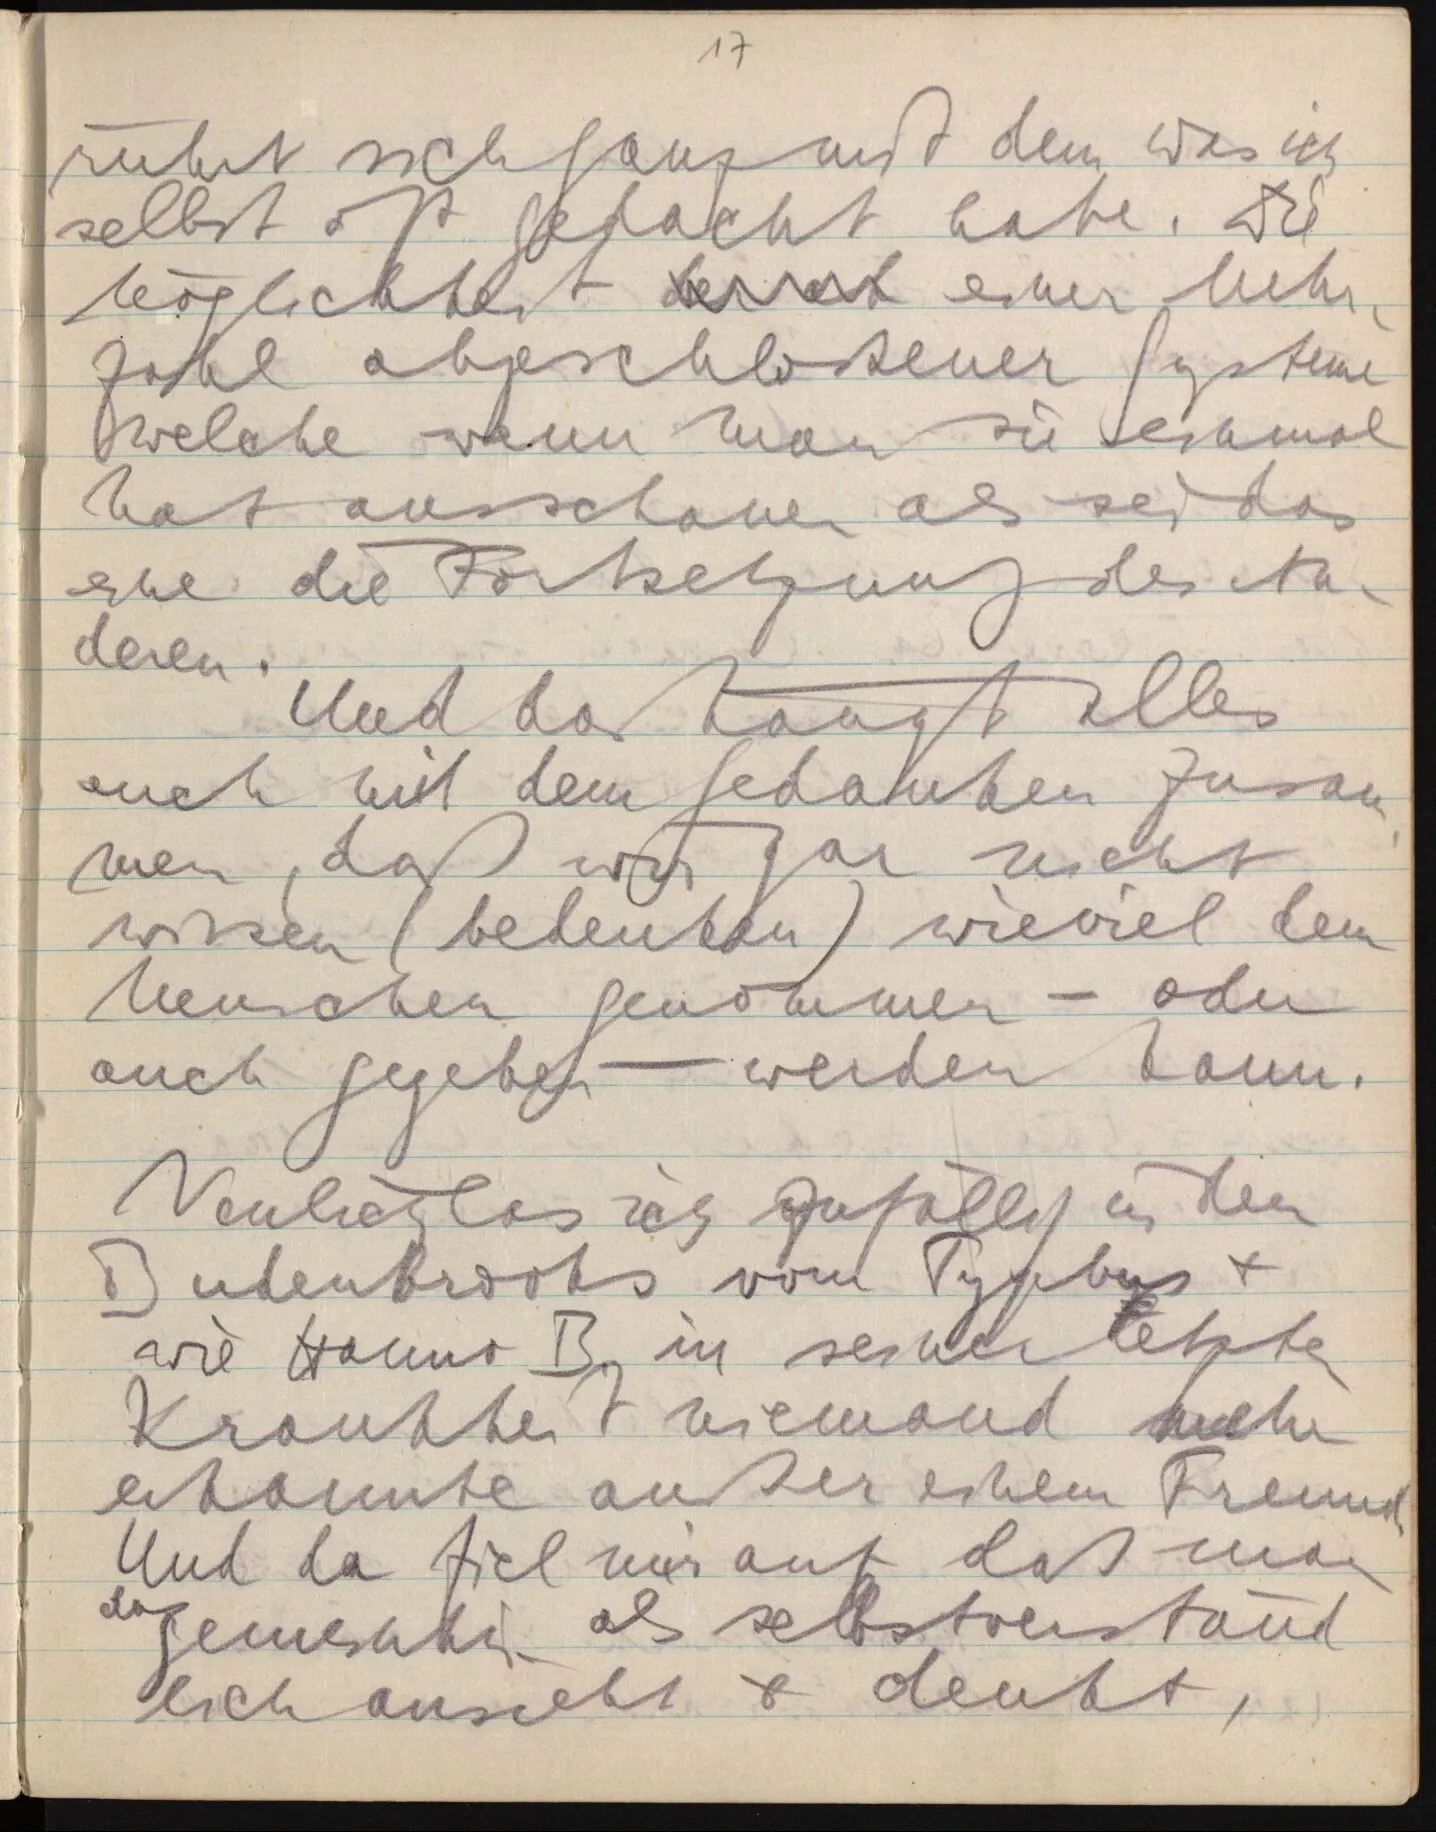 17
rührt sich ganz mit dem was ich
selbst oft gedacht habe. Die
Möglichkeit einer Mehr-
zahl abgeschloßener Systeme
welche wenn man sie einmal
hat ausschauen als sei das
eine die Fortsetzung des An-
deren.
Und das hängt alles
auch mit dem Gedanken zusam
men, daß wir gar nicht
wissen (bedenken) wieviel dem
Menschen genommen – oder
auch gegeben – werden kann.
Neulich las ich zufällig in den
Budenbrooks vom Typhus +
wie Hanno B. in seiner letzten
Krankheit niemand mehr
erkannte außer einem Freund.
Und da fiel mir auf daß man
das gemeinhin als selbstverständ
lich ansieht & denkt,